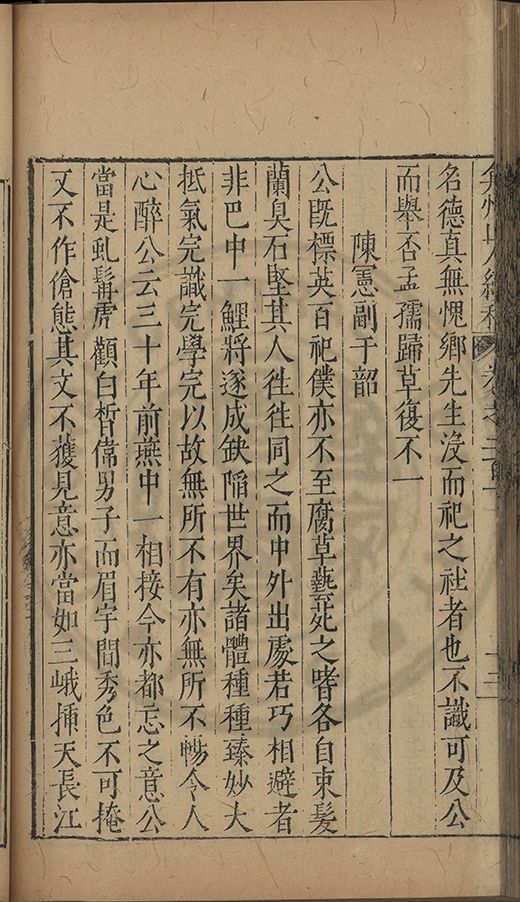 弇州山人續稿
卷之二百
十三
名德真無愧鄉先生沒而祀之社者也不識可及公
而舉否孟孺歸草復不一
陳憲副于韶
公旣標英百祀僕亦不至腐草藝苑之嗜各自束髮
蘭臭石堅其人徃徃同之而中外出處若巧相避者
非巴中一鯉將遂成缺陷世界矣諸體種種臻妙大
抵氣完識完學完以故無所不有亦無所不暢令人
心醉公云三十年前燕中一相接今亦都忘之意公
當是虬髯虎顴白晳偉男子而眉宇間秀色不可掩
又不作傖態其文不獲見意亦當如三峨揷天長江